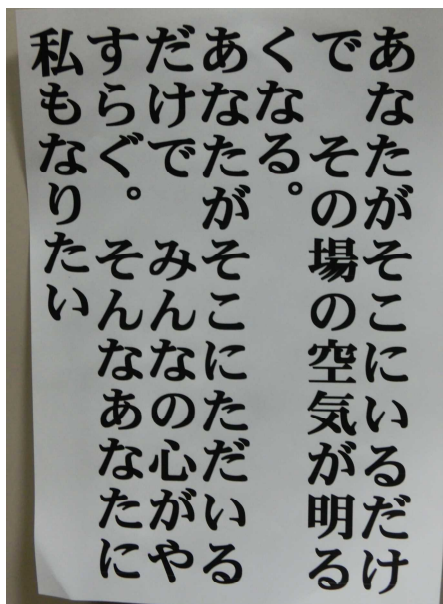 あなたがそこにいるだけ
で　その場の空気が明る
くなる。
あなたがそこにただいる
だけで　みんなの心がや
すらぐ。　そんなあなたに
私もなりたい